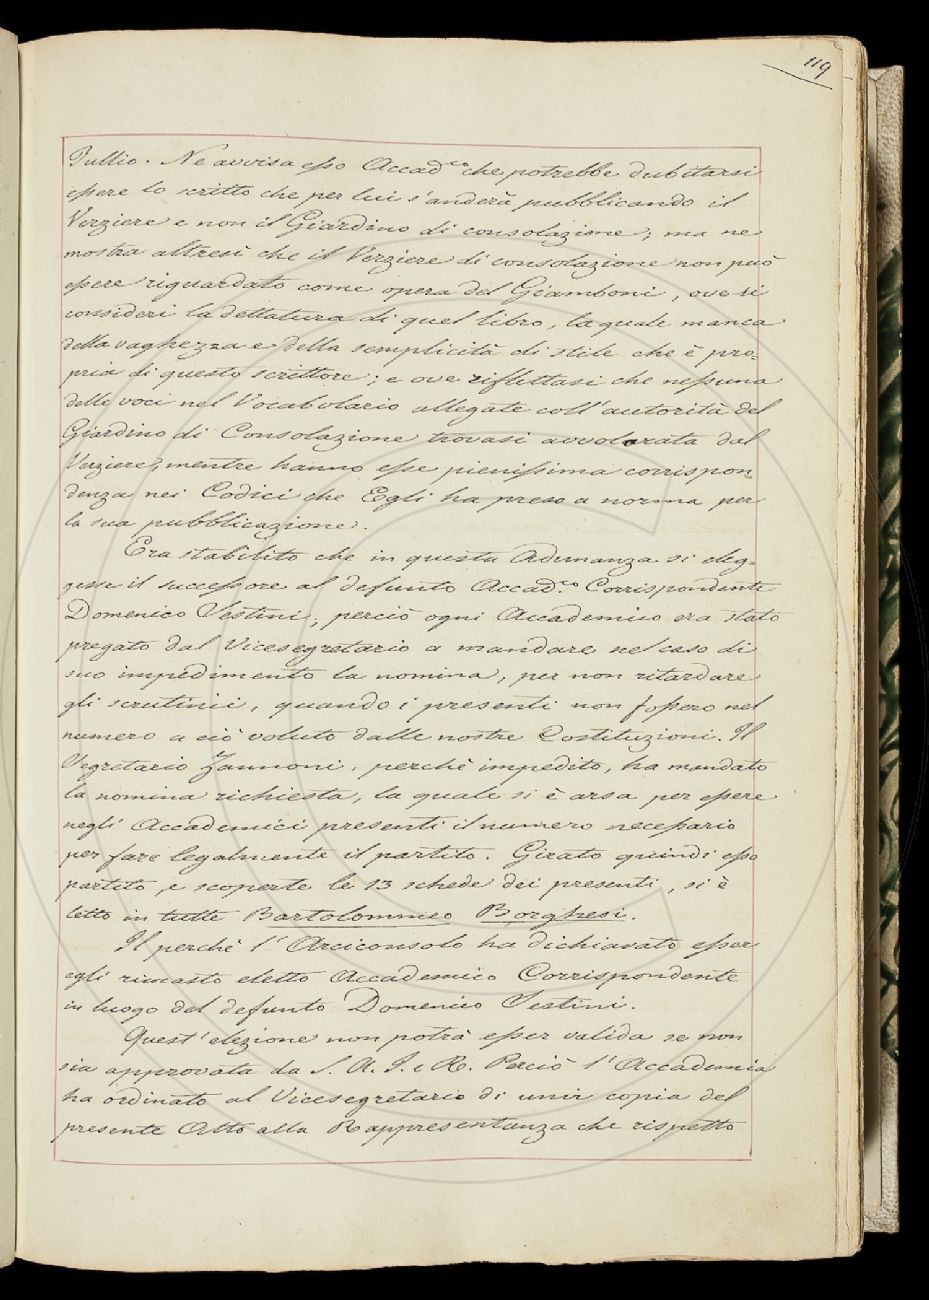 119
Tullio. Ne avvisa esso Accad.co che potrebbe dubitarsi
essere lo scritto che per lui s'anderà pubblicando il
Verziere e non il Giardino di consolazione; ma ne
mostra altresì che il Verziere di consolazione non può
essere riguardato come opera del Giamboni, ove si
consideri la dettatura di quel libro, la quale manca
della vaghezza e della semplicità di stile che è pro-
pria di questo scrittore; e ove riflettasi che nessuna
delle voci nel Vocabolario allegate coll'autorità del
Giardino di Consolazione trovasi avvalorata dal
Verziere, mentre hanno esse pienissima corrispon-
denza nei Codici che Egli ha preso a norma per
la sua pubblicazione.
Era stabilito che in questa Adunanza si eleg-
gesse il successore al defunto Accad.co Corrispondente
Domenico Sestini; perciò ogni Accademico era stato
pregato dal Vicesegretario a mandare nel caso di
suo impedimento la nomina, per non ritardare
gli scrutinii, quando i presenti non fossero nel
numero a ciò voluto dalle nostre Costituzioni. Il
Segretario Zannoni, perchè impedito, ha mandato
la nomina richiesta, la quale si è arsa per essere
negli Accademici presenti il numero necessario
per fare legalmente il partito. Girato quindi esso
partito e scoperte le 13 schede dei presenti, si è
letto in tutte Bartolommeo Borghesi.
Il perchè l'Arciconsolo ha dichiarato esser
egli rimasto eletto Accademico Corrispondente
in luogo del defunto Domenico Sestini.
Quest'elezione non potrà esser valida se non
sia approvata da S. A. I. e R. Perciò l'Accademia
ha ordinato al Vicesegretario di unir copia del
presente Atto alla Rappresentanza che rispetto